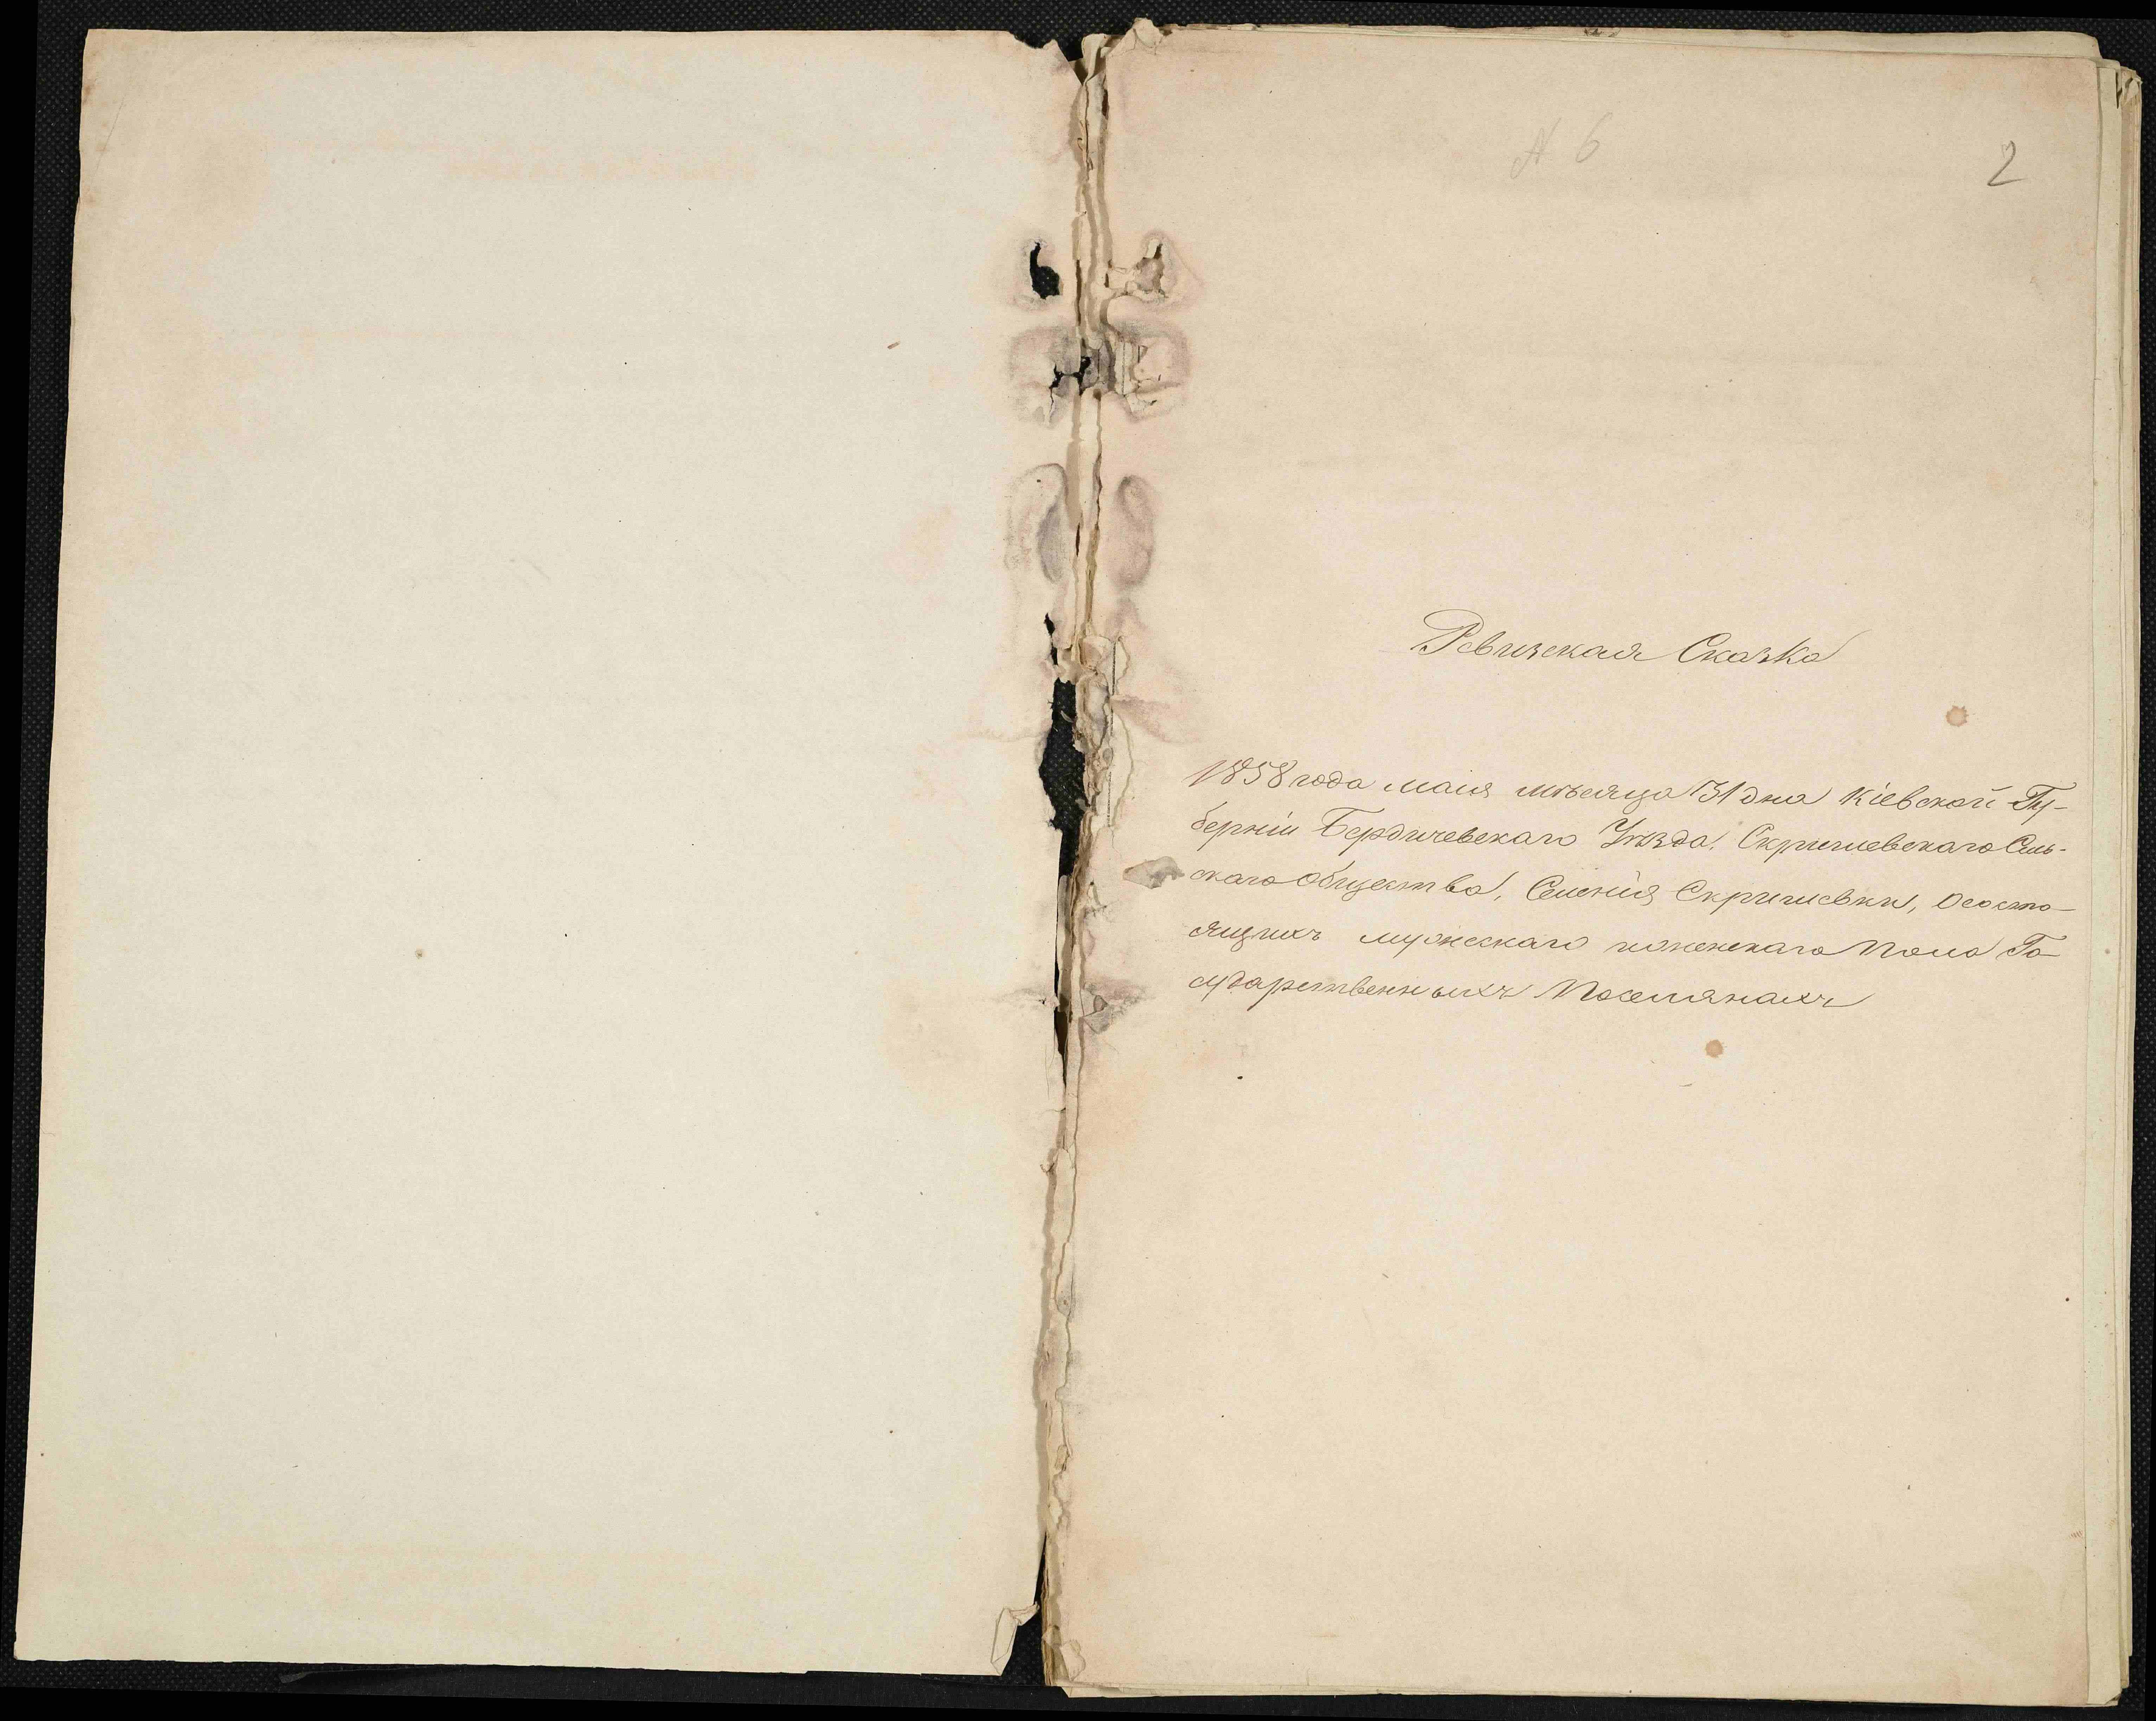 № 6
2
Ревизская Сказка
1858 года маия мѣсяца 31 дня Кіевской Гу-
берніи Бердичевскаго Уѣзда, Скригилевскаго Сель-
скаго Общества, Селенія Скригилевки, о состо-
ящихъ мужескаго и женскаго пола Го-
сударственныхъ Поселянахъ